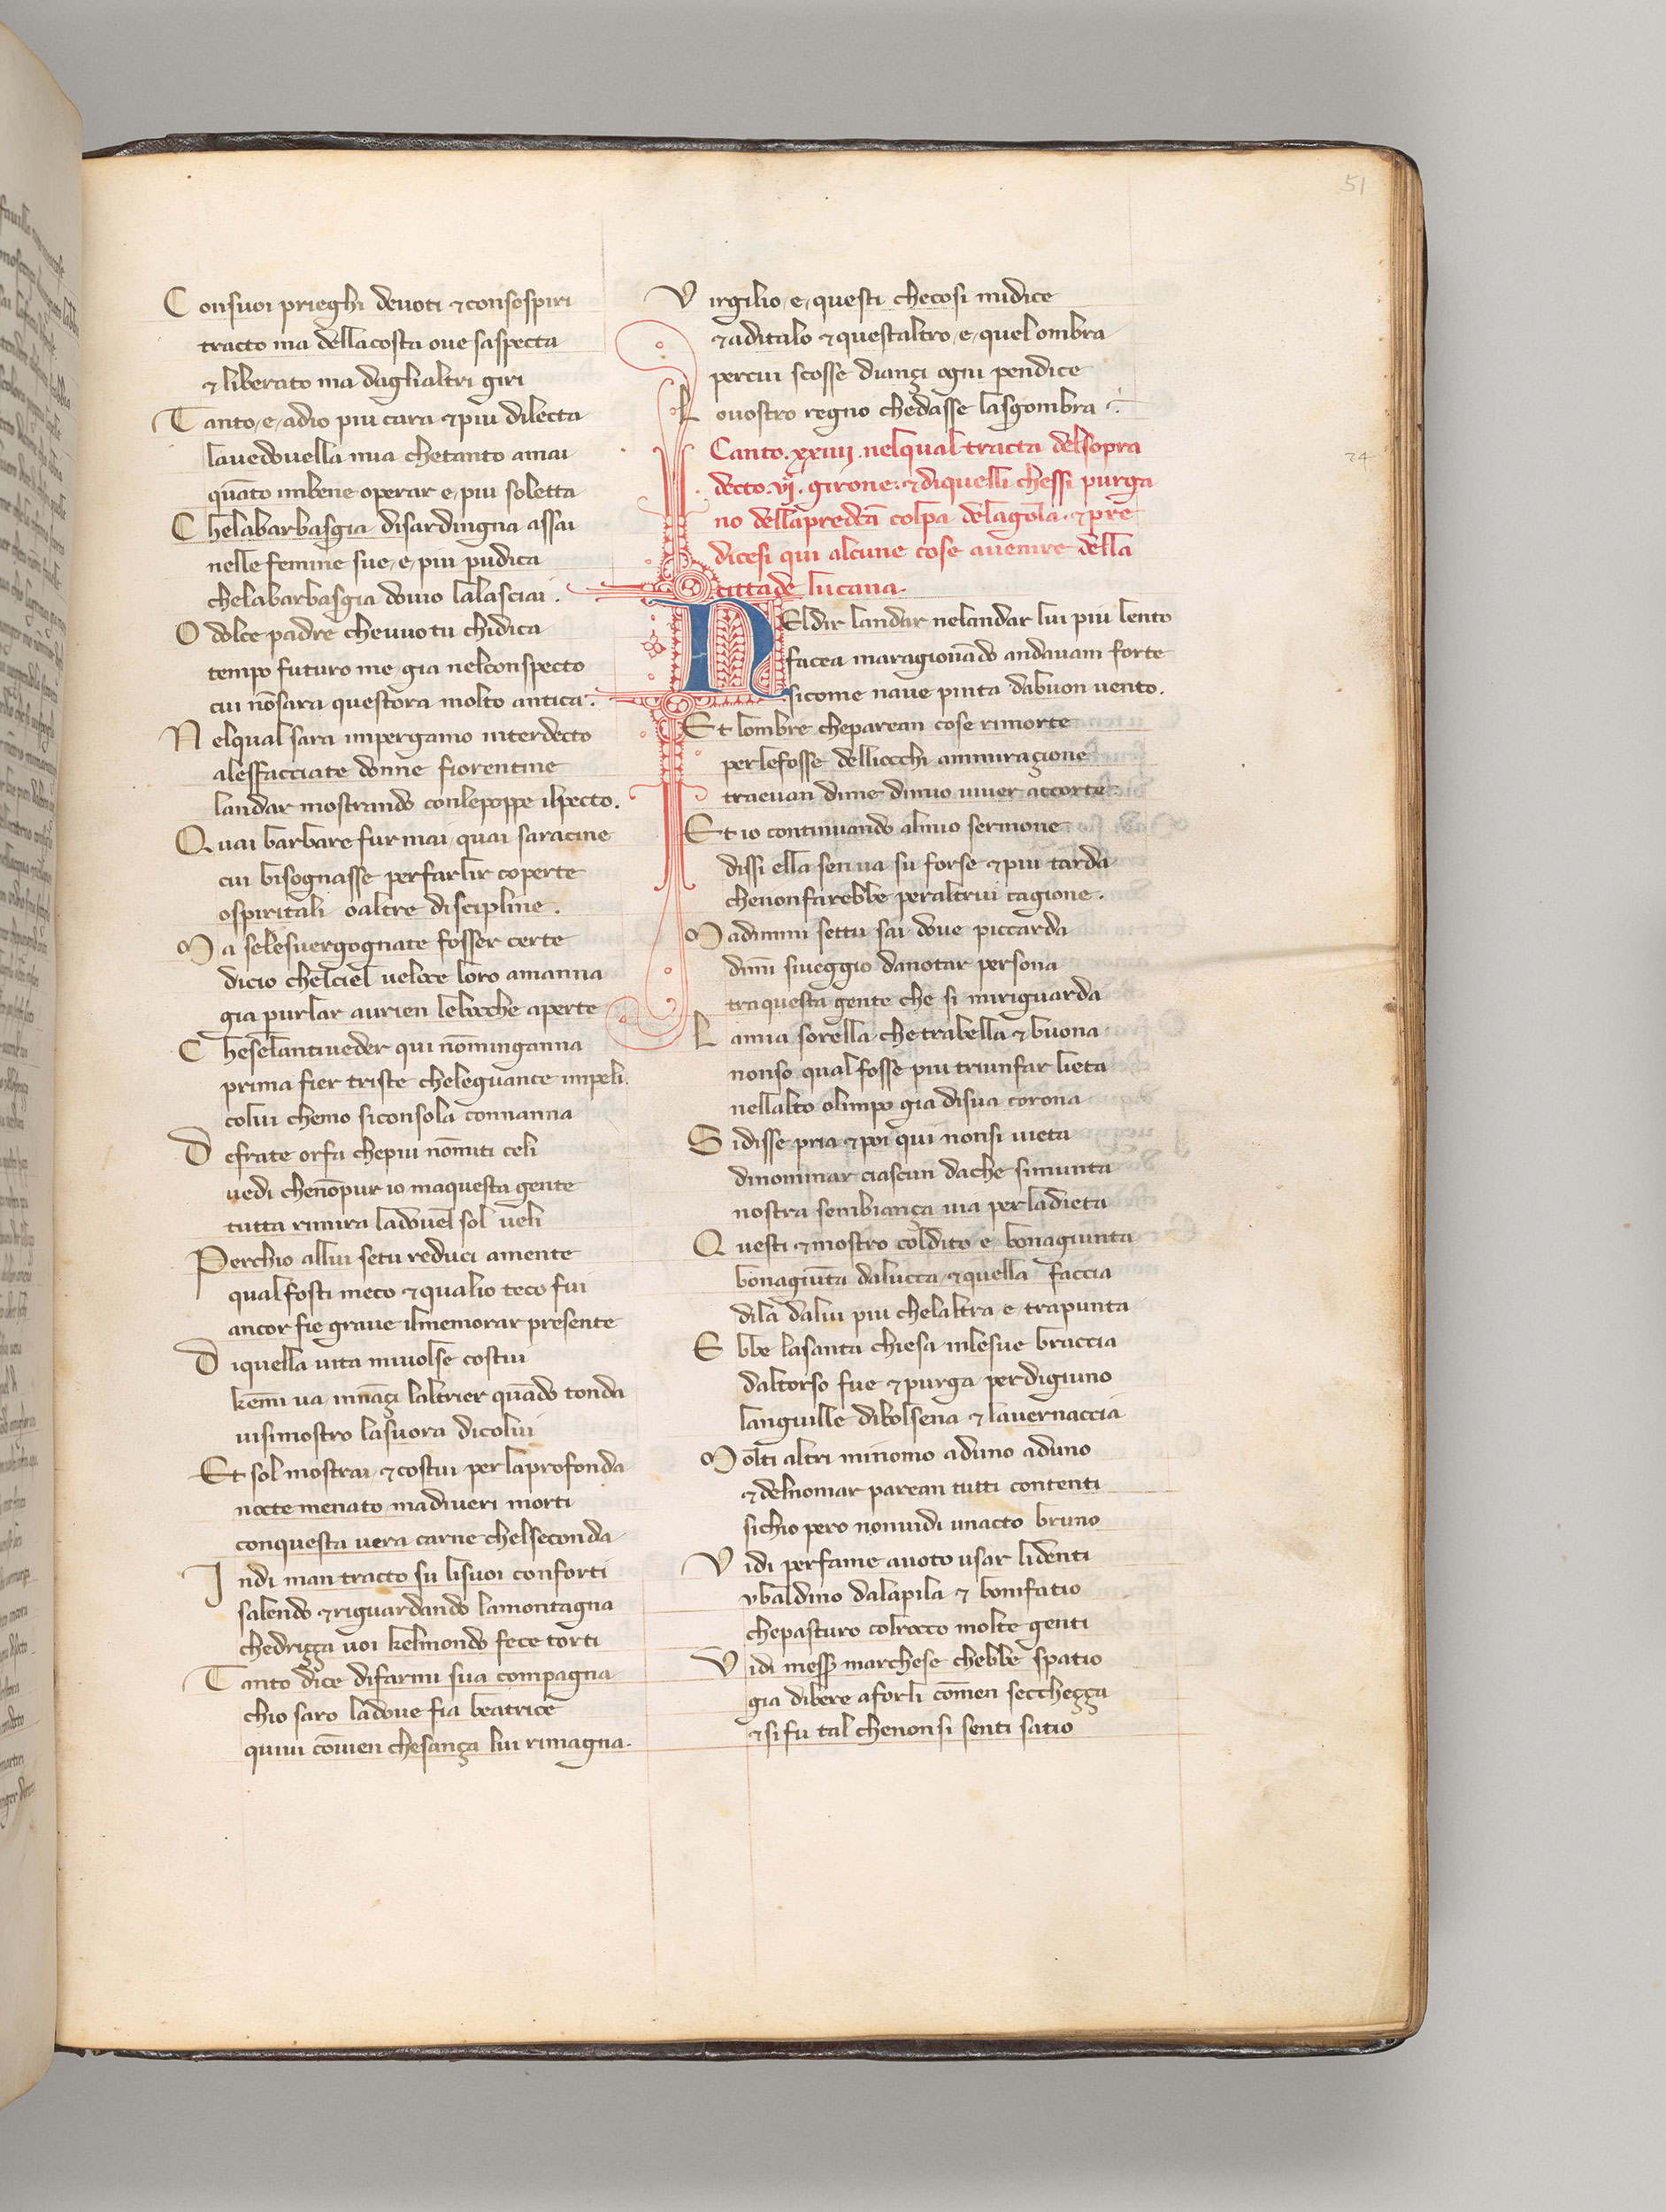 51
Consuoi prieghi devoti ⁊ consospiri
tracto ma della costa ove saspecta
⁊ liberato ma daglialtri giri
Tanto, e, adio piu cara ⁊ piu dilecta
la vedovella mia che tanto amai
quāto imbene operar e, piu soletta
Chelabarbagia disardingna assai
nelle femine sue, e, piu pudica
chelabarbagia dovio lalasciai.
O dolce padre che vuotu chidica
tempo futuro me, gia nelconspecto
cui nōsara questora molto antica.
Nelqual sara impergamo interdecto
alesfacciate donne fiorentine
landar mostrando conlepoppe ilpecto.
Quai barbare fur mai, quai saracine
cui bisognasse perfarlir coperte
ospiritali oaltre discipline.
Ma selesvergognate fosser certe
dicio chelciel veloce loro amanna
gia purlar aurien lebocche aperte
Cheselantiveder qui nōminganna
prima fier triste cheleguance impeli.
colui chemo siconsola connanna
De frate or fa chepiu nōmiti celi
vedi chenōpur io maquesta gente
tutta rimira ladovel sol veli
Perchio allui setu reduci amente
qual fosti meco ⁊ qualio teco fui
ancor fie grave ilmemorar presente
Diquella vita mivolse costui
kemi va innāçi laltrier quādo tonda
visimostro lasuora dicolui
Et sol mostrai, ⁊ costui per laprofonda
nocte menato madiveri morti
conquesta vera carne chelseconda
Indi man tracto su lisuoi conforti
salendo ⁊ riguardando lamontagna
chedriçça voi kelmondo fece torti
Tanto dice difarmi sua compagna
chio saro ladove fia beatrice
quivi cōvien chesança lui rimagna.
Virgilio, e, questi checosi midice
⁊ aditalo ⁊ questaltro, e, quel ombra
percui scosse diançi ogni pendice
Lovostro regno chedasse lasgombra
Canto. xxiiij. nelqual tracta delsopra
decto. vj. girone: ⁊ diquelli chessi purga
no dellapredc̄a colpa delagola. ⁊ pre
dicesi qui alcune cose avenire della
cittade lucana.
24
NEldir landar nelandar lui piu lento
facea maragionādo andavam forte
sicome nave pinta dabuon vento.
Et lombre cheparean cose rimorte
perlefosse delliocchi ammiraçione
traevan dime dimio viver accorte
Et io continuando almio sermone
dissi ella sen va su forse ⁊ piu tarda
chenonfarebbe peraltrui cagione.
Madimmi settu sai dove piccarda
dimi siveggio danotar persona
traquesta gente che si miriguarda
Lamia sorella che trabella ⁊ buona
nonso qual fosse piu triunfar lieta
nellalto olimpo gia disua corona
Sidisse pria ⁊ poi qui nonsi vieta
dinominar ciascun dache simunta
nostra sembiança via perladieta
Questi ⁊ mostro coldito e bonagiunta
bonagiūta dalucca, ⁊ quella faccia
dila dalui piu chelaltra e trapunta
Ebbe lasanta chiesa inlesue braccia
daltorso fue ⁊ purga perdigiuno
languille dibolsena ⁊ lavernaccia
Molti altri minomo aduno aduno
⁊ delnomar parean tutti contenti
sichio pero nonvidi unacto bruno
Vidi perfame avoto usar lidenti
ubaldino dalapila ⁊ bonifatio
chepasturo colrocco molte genti
Vidi mess̄ marchese chebbe spatio
gia dibere aforli cōmen seccheçça
⁊ sifu tal chenonsi senti satio